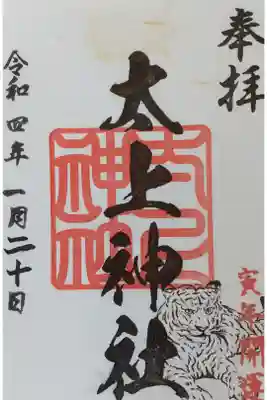 奉拝
太上神社
寅年開運
令和四年 一月二十日